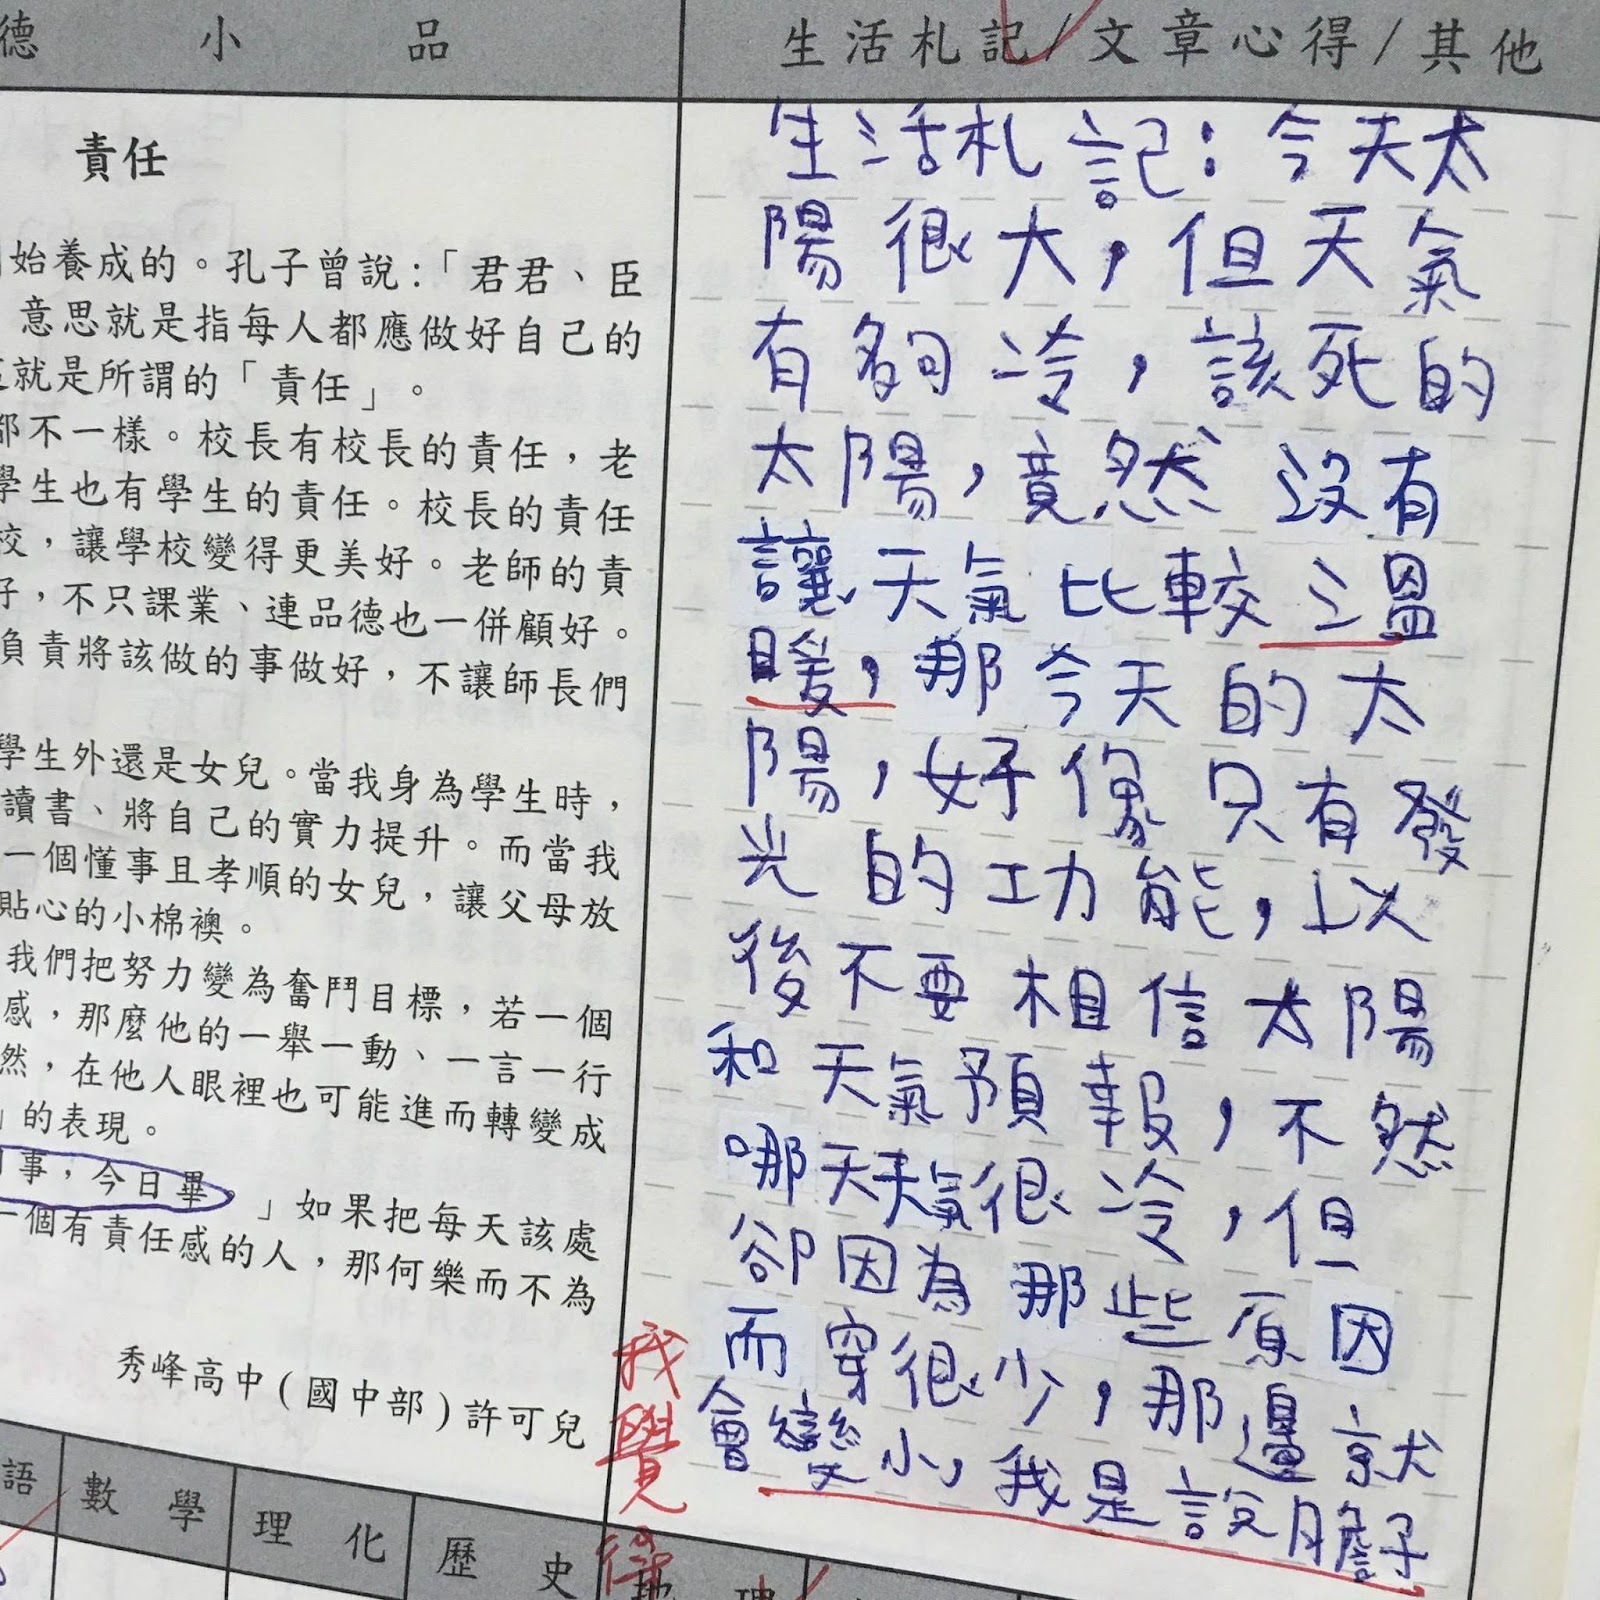 德小品
生活札記/文章心得/其他
責任
始養成的。孔子曾說:「君君、臣
意思就是指每人都應做好自己的
就是所謂的「責任」。
都不一樣。校長有校長的責任,老
學生也有學生的責任。校長的責任
校,讓學校變得更美好。老師的責
好,不只課業、連品德也一併顧好。
負責將該做的事做好,不讓師長們
學生外還是女兒。當我身為學生時,
讀書、將自己的實力提升。而當我
一個懂事且孝順的女兒,讓父母放
貼心的小棉襖。
我們把努力變為奮鬥目標,若一個
感,那麼他的一舉一動、一言一行
然,在他人眼裡也可能進而轉變成
」的表現。
事,今日畢。」如果把每天該處
一個有責任感的人,那何樂而不為
秀峰高中(國中部)許可兒
生活札記:今天太
陽很大,但天氣
有夠冷,該死的
太陽,竟然沒有
讓天氣比較溫
暖,那今天的太
陽,好像只有發
光的功能,以
後不要相信太陽
和天氣預報,不然
哪天天氣很冷,但
卻因為那些原因
而穿很少,那邊就
會變小,我是說膽子
我覺得
語 數學 理化 歷史 地理